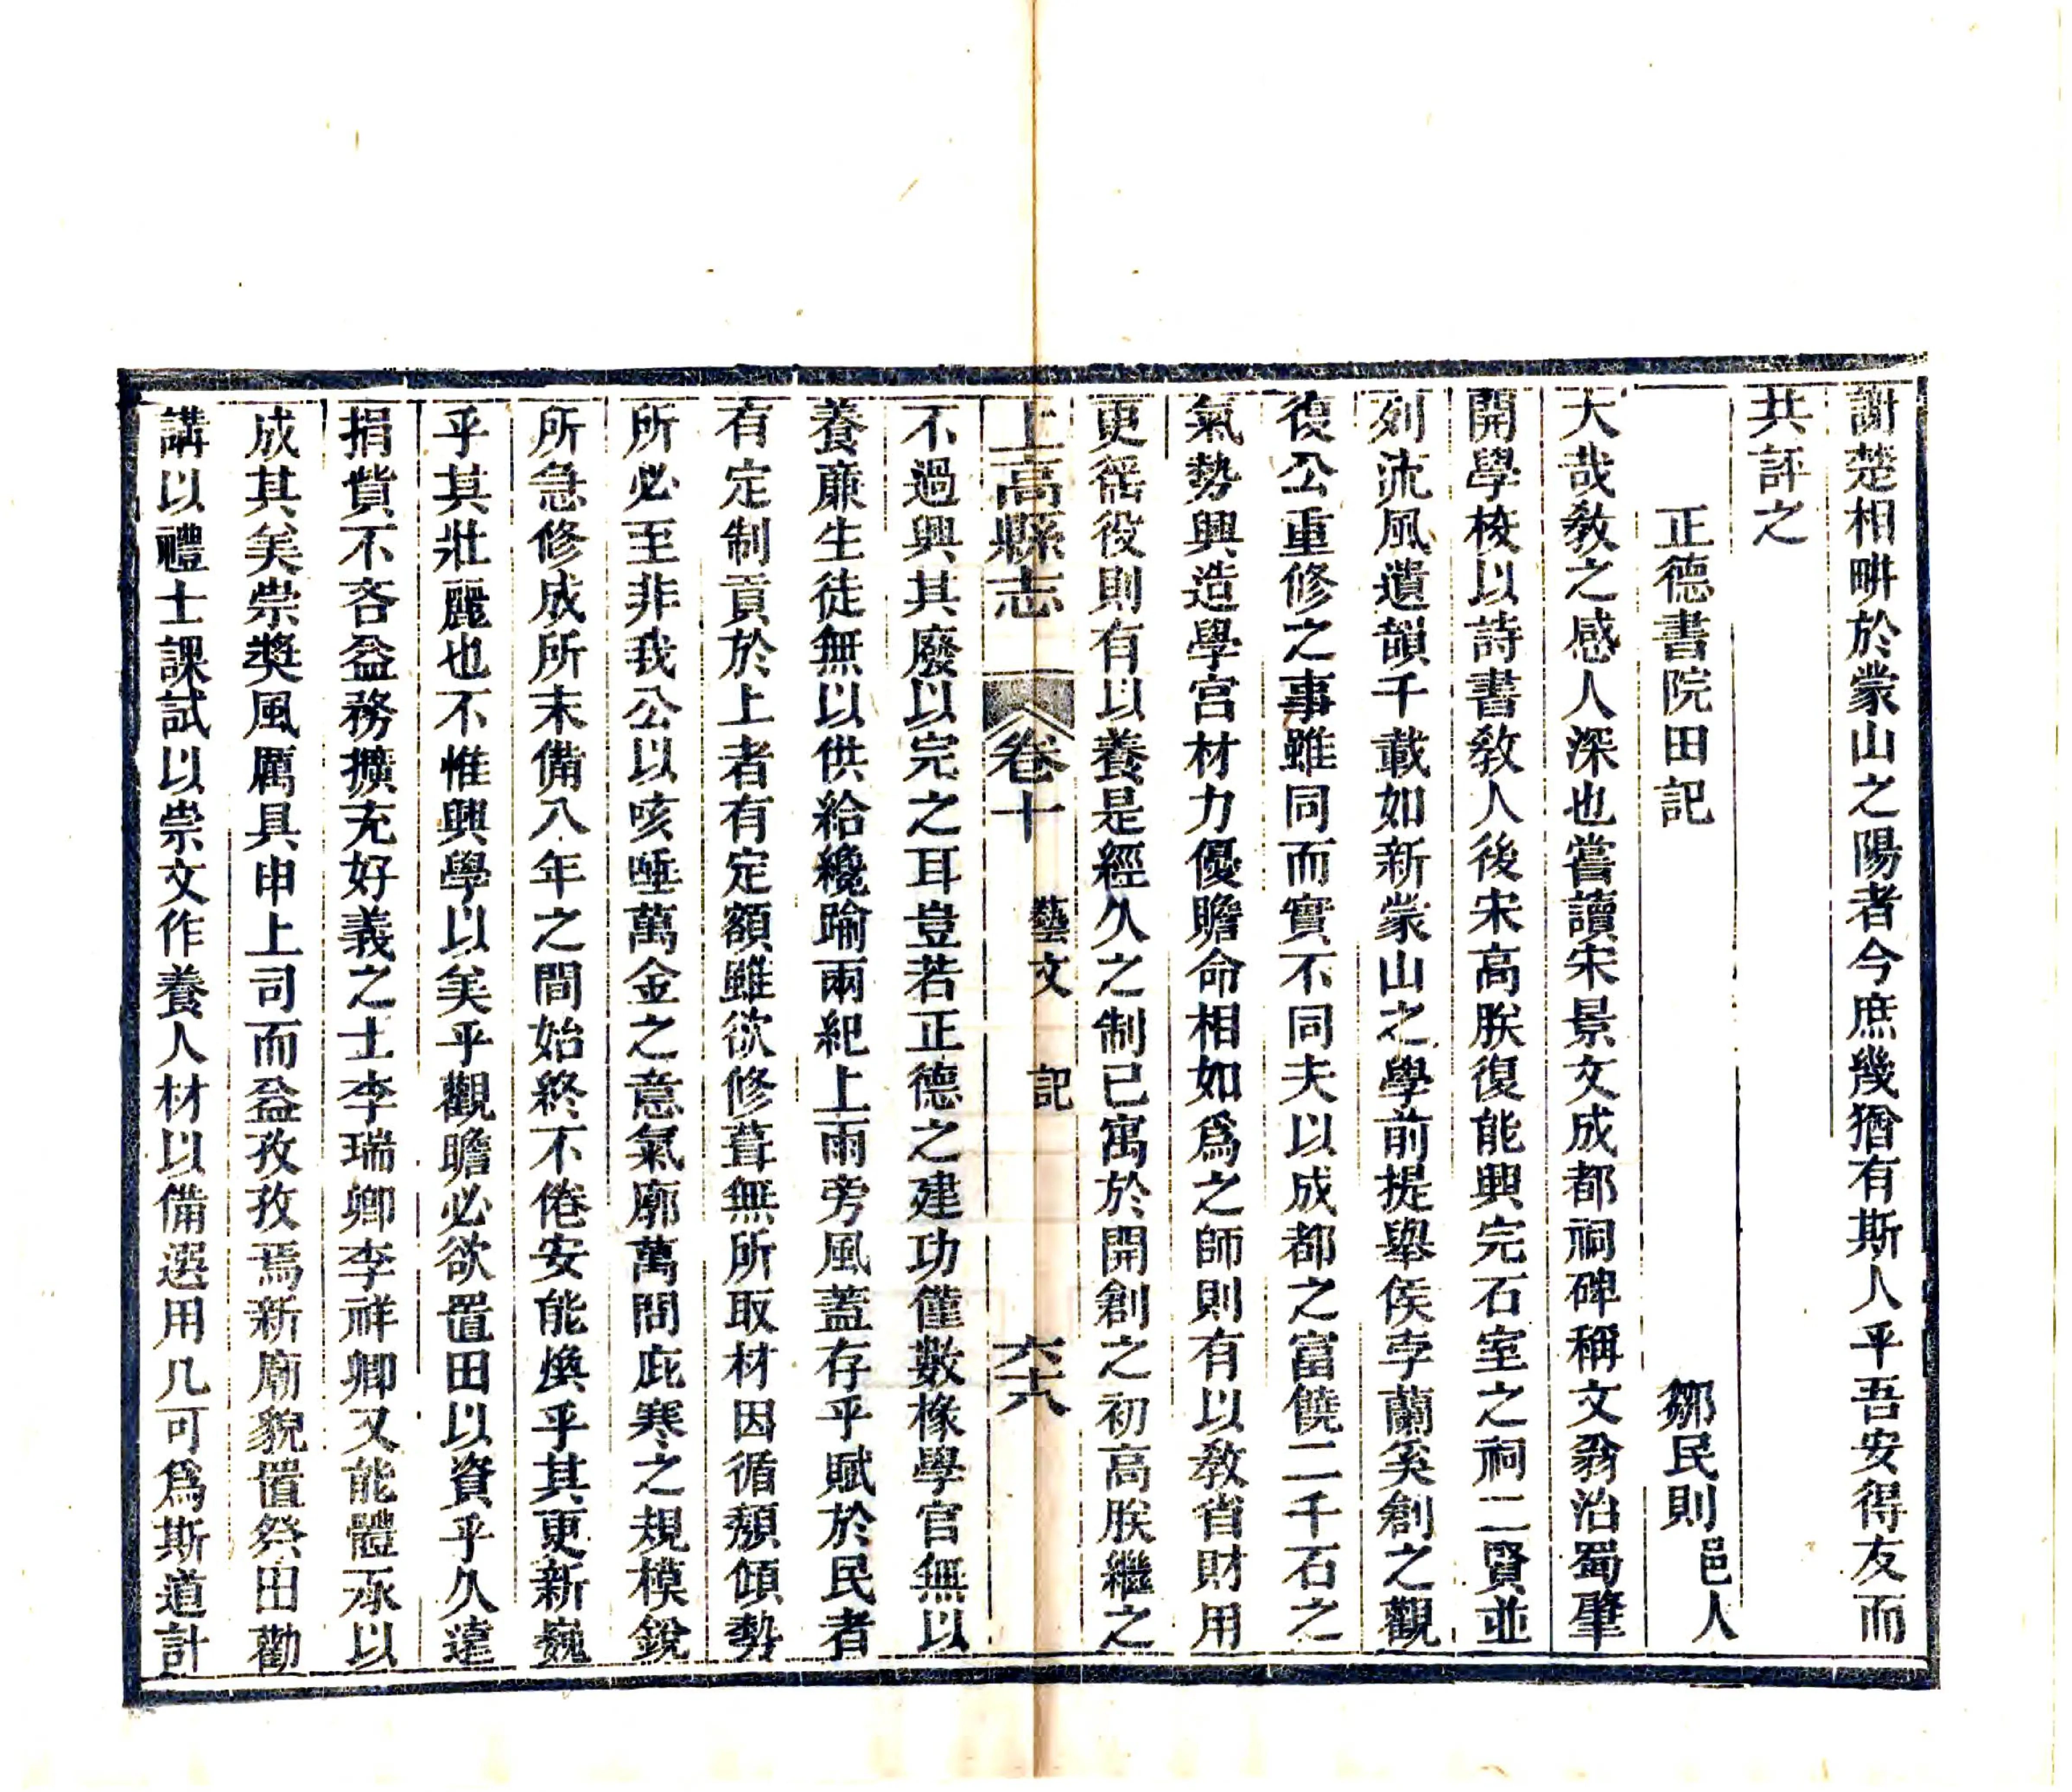 謝楚相畊於蒙山之陽者今庶幾猶有斯人乎吾安得友而
共評之
正德書院田記
鄒民則邑人
大哉敎之感人深也嘗讀宋景文成都祠碑稱文翁治蜀肇
開學校以詩書敎人後宋高朕復能興完石室之祠二賢並
列流風遺韻千載如新蒙山之學前提舉侯孛蘭奚創之觀
復公重修之事雖同而實不同夫以成都之富饒二千石之
氣勢興造學宮材力優贍命相如爲之師則有以敎省財用
更徭役則有以養是經久之制已寓於開創之初高朕繼之
上高縣志
卷十
藝文
記
六十八
不過興其廢以完之耳豈若正德之建功僅數椽學官無以
養廉生徒無以供給纔踰兩紀上雨旁風蓋存乎賦於民者
有定制貢於上者有定額雖欲修葺無所取材因循頽傾勢
所必至非我公以咳唾萬金之意氣廓萬間庇寒之規模銳
所急修成所未備八年之間始終不倦安能煥乎其更新巍
乎其壯麗也不惟興學以美乎觀瞻必欲置田以資乎久遠
捐貲不吝益務擴充好義之士李瑞卿李祥卿又能體承以
成其美崇奬風厲具申上司而益孜孜焉新廟貌置祭田勸
講以禮士課試以崇文作養人材以備選用凡可爲斯道計